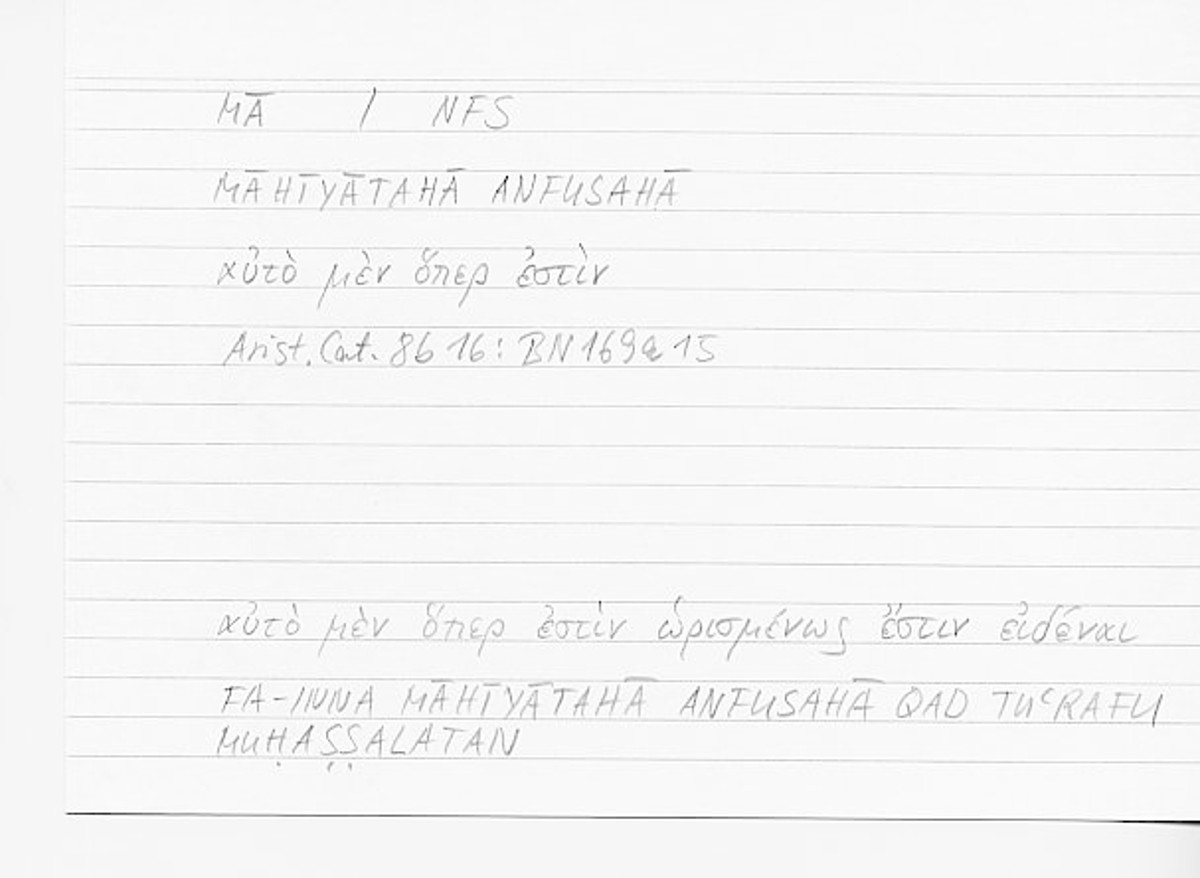 MĀ / NFS
MĀHĪYĀTAHĀ ANFUSAHĀ
αὐτὸ μὲν ὅπερ ἐστὶν
Arist. Cat. 8b 16 : BN 169a 15
αὐτὸ μὲν ὅπερ ἐστὶν ὡρισμένως ἔστιν εἰδέναι
FA-INNA MĀHĪYĀTAHĀ ANFUSAHĀ QAD TUʿRAFU
MUḤAṢṢALATAN